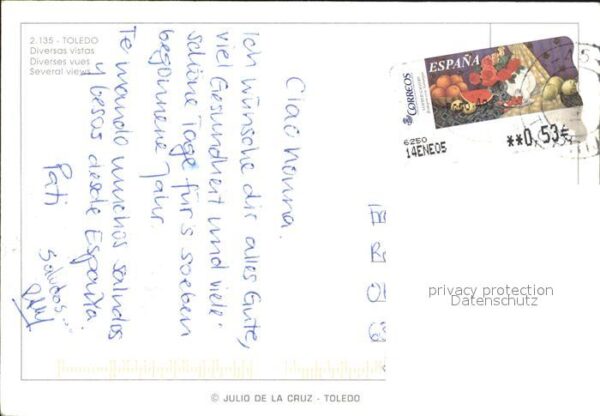 2.135 - TOLEDO
Diversas vistas
Diverses vues
Several views
Ciao nonna.
Ich wünsche dir alles Gute,
viel Gesundheit und viele
schöne Tage für's soeben
begonnene Jahr.
Te mando muchos saludos
y besos desde España.
Pati
Saludos...
ESPAÑA
CORREOS
6250
14ENE05
**0,53€
privacy protection
Datenschutz
© JULIO DE LA CRUZ - TOLEDO